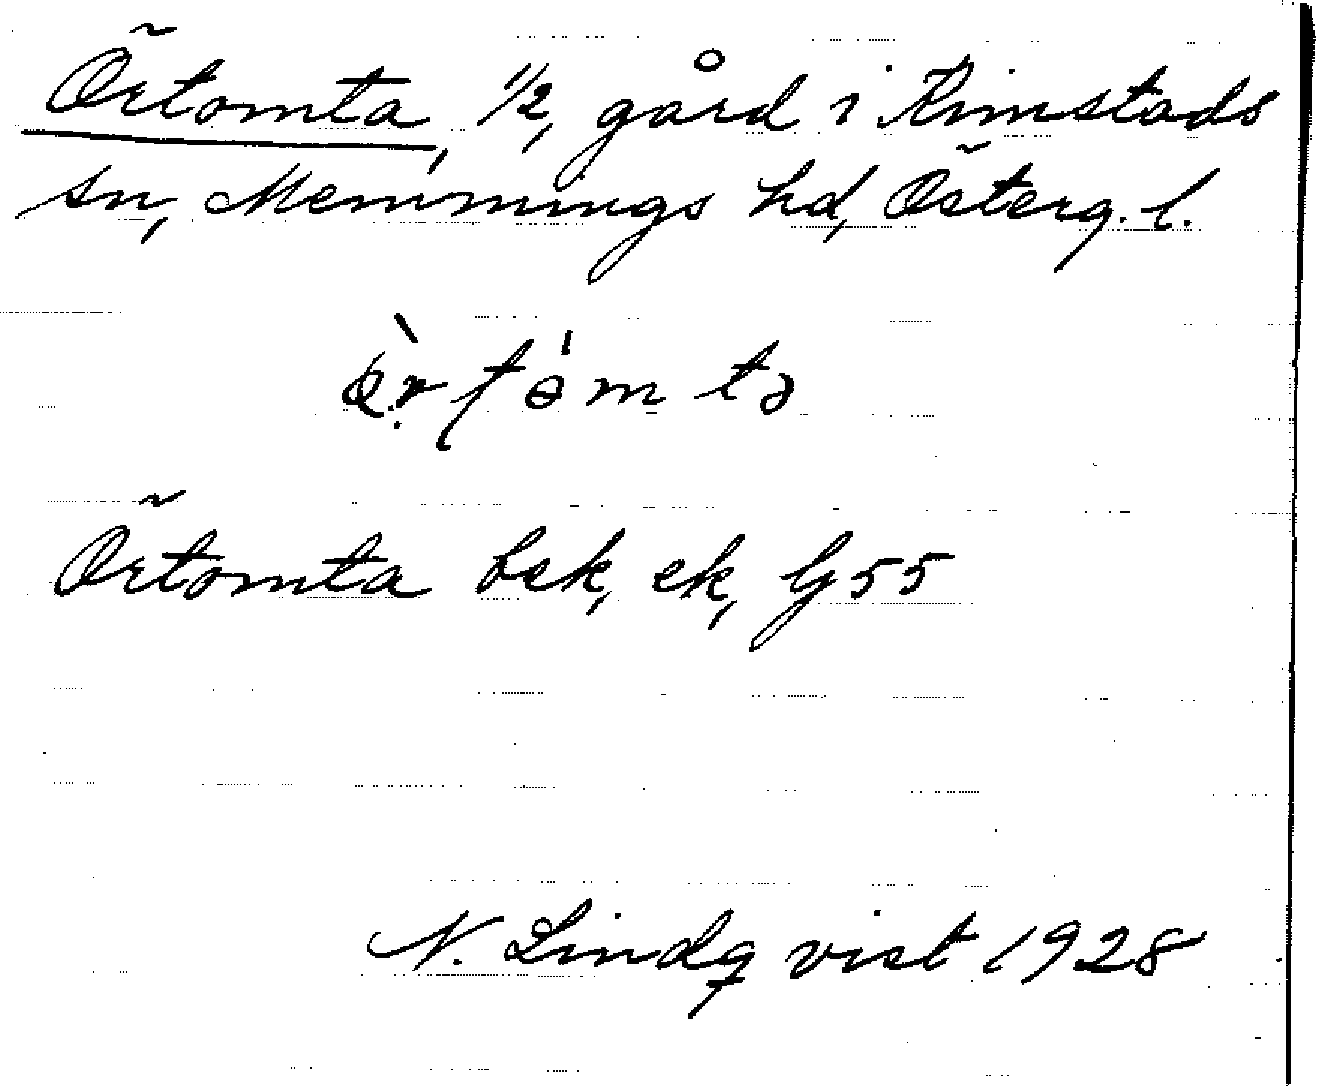 Örtomta, 1/2, gård i Rimstads
sn, Memmings hd, Österg. l.
Örtomta bsk, ek, G 55
N. Lindqvist 1928